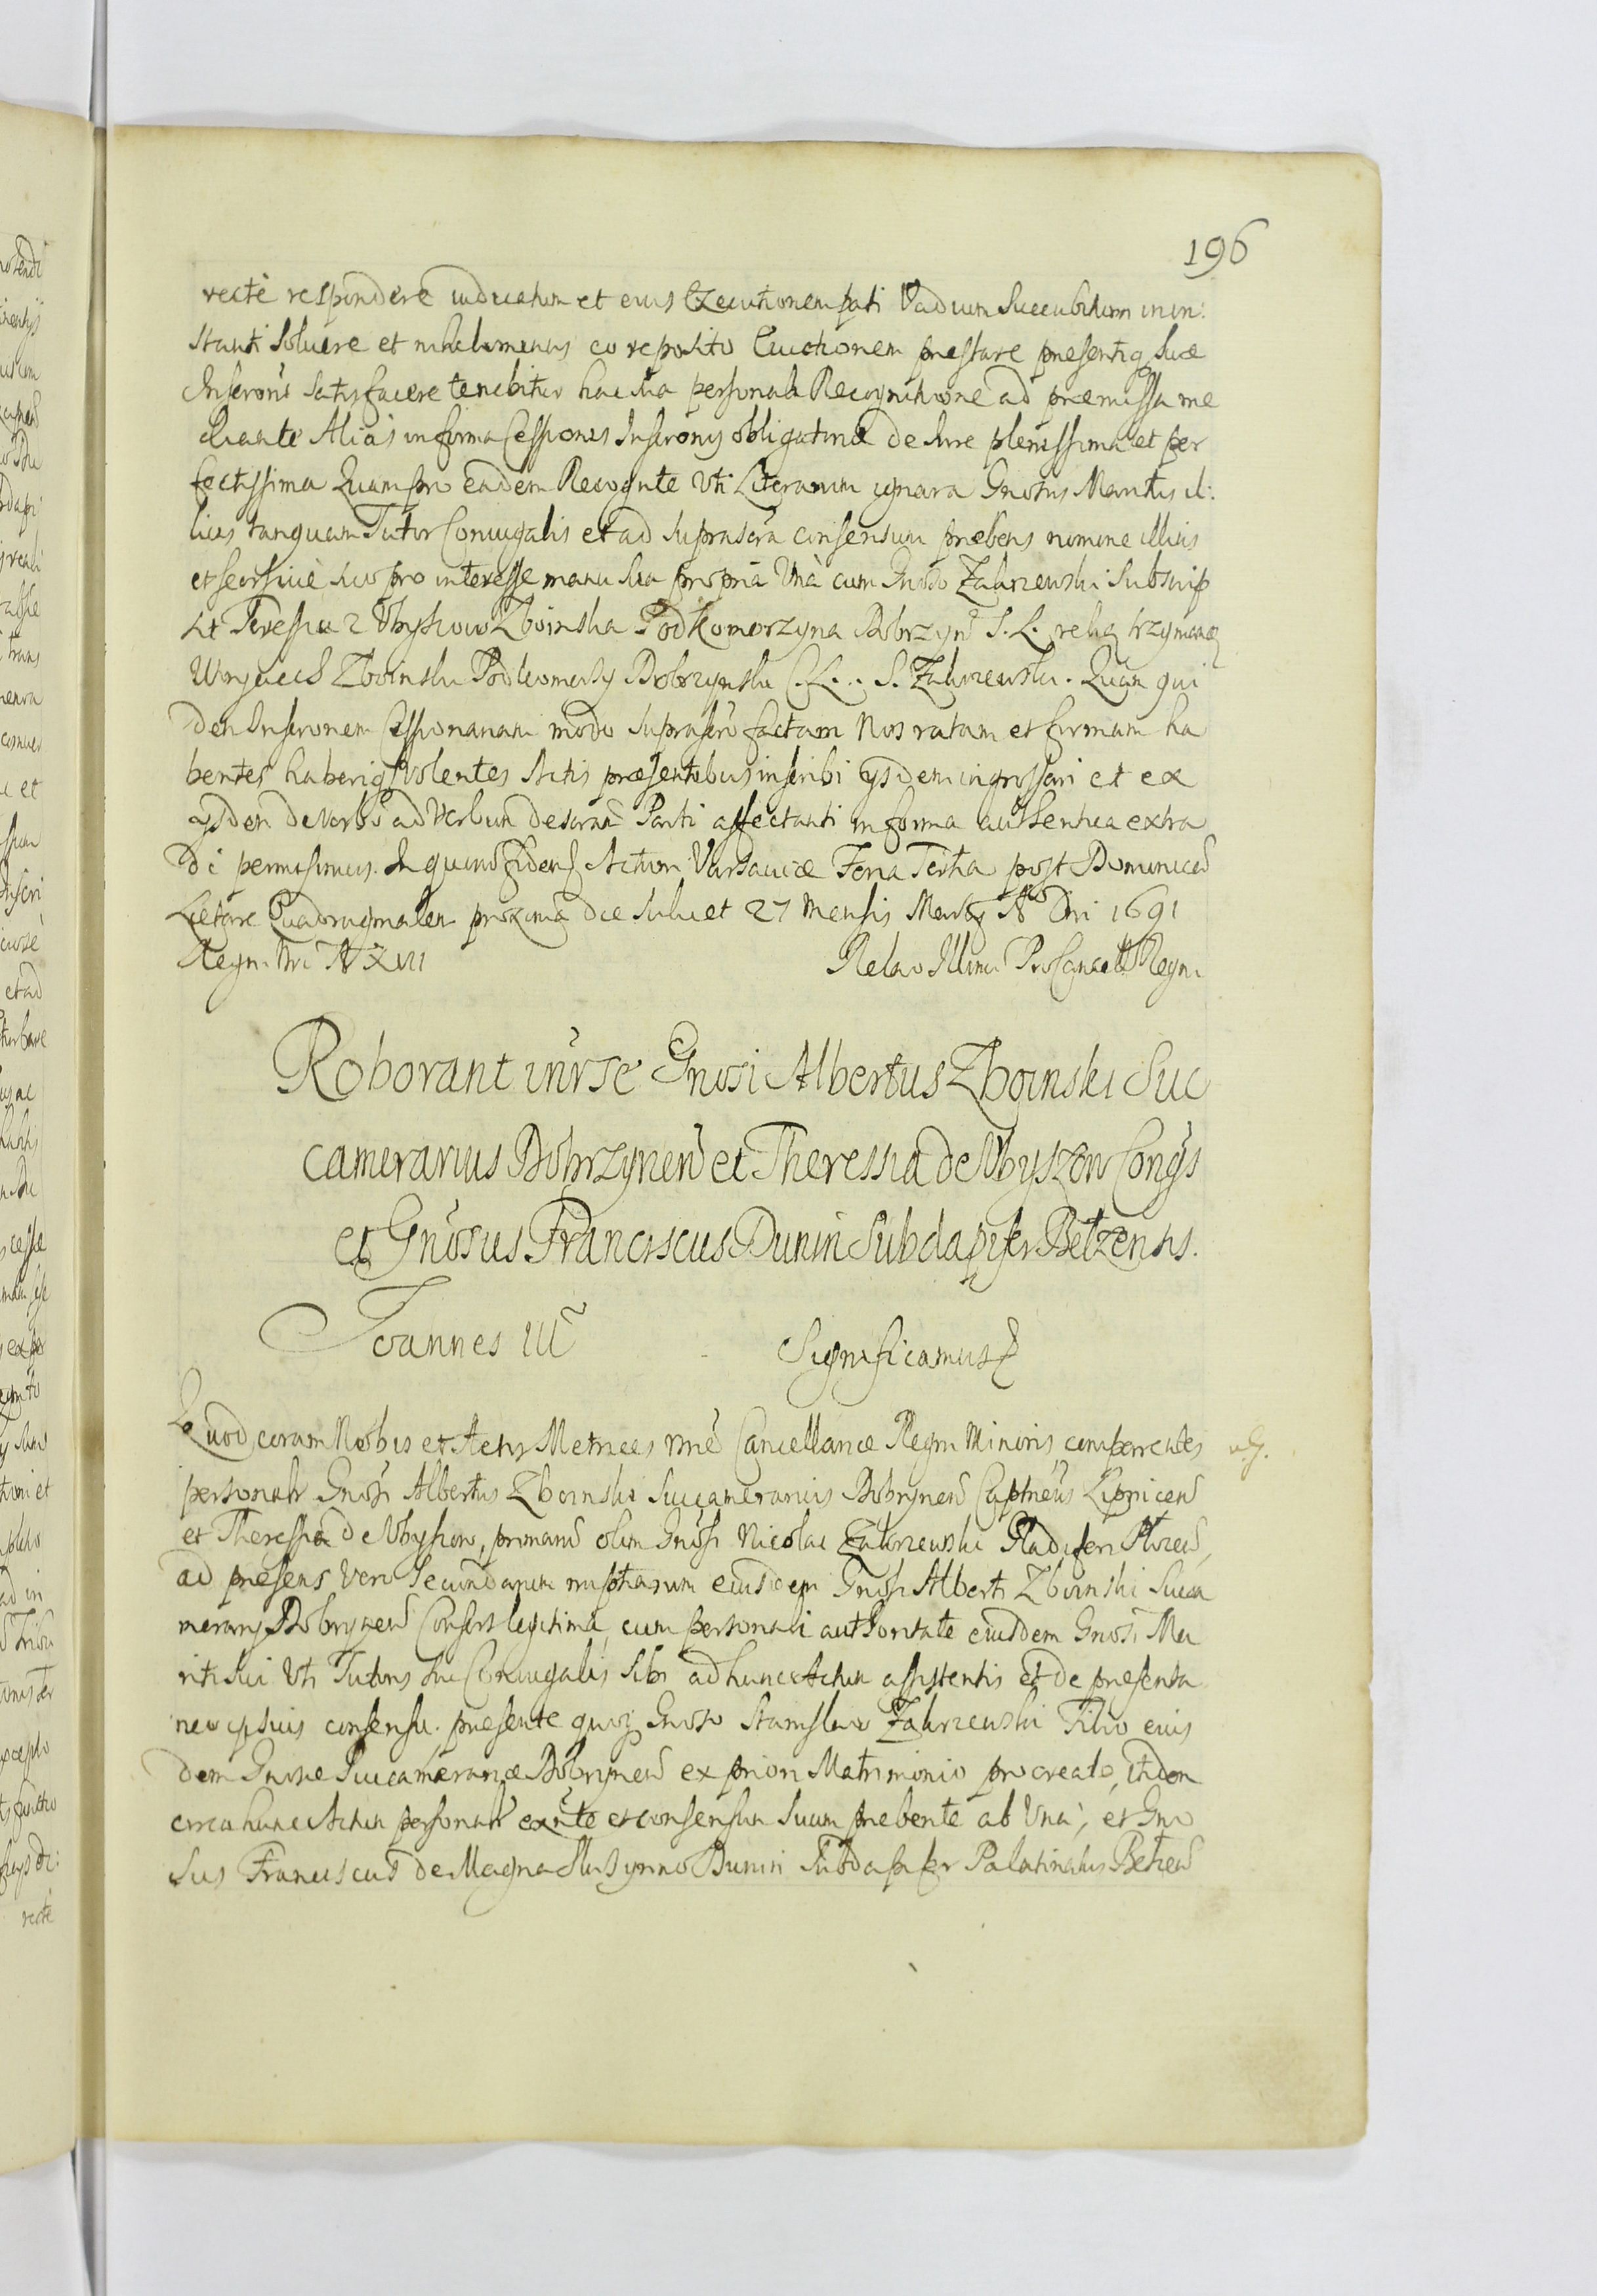 196
rectè respondere iudicatum et eius Executionem pati Vadium succubitum in in:
stanti Soluere et nihilominus eo reposito Euictionem prestare presentiq suæ
Inscroñis Satisfacere tenebitur hac sua personali Recognitione ad præmissa me
diante Alias in forma Cessionis Inscronis obligatoriæ de Iure plenissima et per
fectissima Quam pro eadem Recognte Uti Literarum ignara Gnosus Maritus il:
lius tanquam Tutor Coniugalis et ad suprascra consensum præbens nomine illius
et seorsiuè suo pro interesse manu sua propria Unà cum Gnoso Zakrzewski Subscrip
sit Teressia z Ubyszow Zboinska Podkomorzyna Dobrzyn S. L. reką trzymaną
Woyciech Zboinski Podkomorzy Dobrzynski S. Zakrzewski. Quam qui
dem Inscronem Cessionariam modo suprascro factam Nos ratam et firmam ha
bentes haberiq Volentes Actis præsentibus inscribi ijsdem ingrossari et ex
ijsdem de Verbo ad Verbum Parti affectanti in forma authentica extra
di permisimus. In quorum fidem Actum Varsauiæ Feria Tertia post Dominicam
Lætare Quadragesimalem proxima die Scilicet 27 Mensis Martij Ao Dni 1691
Regn. Nri Ao XVII Relao Illmi ProCancell Regni
Roborant inūrsē Gnosi Albertus Zboinski Suc
camerarius Dobrzynen et Theressia de Ubyszow Congs
et Gnosus Franciscus Dunin Subdapifer Betzensis.
Joannes III Significamus
Quod coram Nobis et Actis Metrices nræ Cancellariæ Regni Minoris comparentes
personalr Gnosi Albertus Zboinski Succamerarius Dobrynen Captneus Lipnicen
et Theressia de Ubyszow, primarum olim Gnosi Nicolai Zakrzewski Gladiferi
ad præsens Vero Secundarum nuptiarum eiusdem Gnosi Alberti Zboinski Succa
merarij Dobrynen Consors legitima cum personali authoritate eiusdem Gnosi Ma
riti sui Uti Tutoris sui Coniugalis sibi ad hunc Actum assistentis et de presenta
neo ipsius consensu. presente quoq Gnoso Stanislao Zakrzewski Filio eius
dem Gnosæ Succamerariæ Dobrynen ex priori Matrimonio procreato, itidem
circa hunc Actum personalr exñte et consensum suum præbente ab Una, et Gno
sus Franciscus de Magna Skrzynno Dunin Subdapifer Palatinatus Betzen